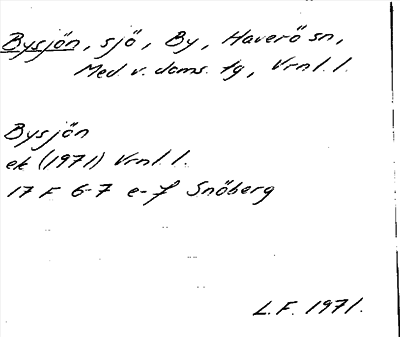 Bysjön, sjö, By, Haverö sn,
Med v. doms. tg, Vrnl. l.
Bysjön
ek (1971) Vrnl. l.
17 F 6-7 e-f Snöberg
L.F. 1971.